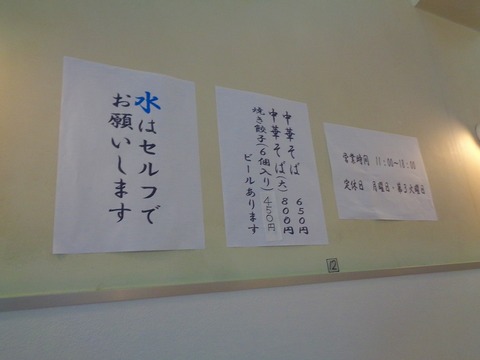 水はセルフで
お願いします
中華そば 650円
中華そば(大) 800円
焼き餃子(6個入り) 450円
ビールあります
営業時間 11:00~18:00
定休日 月曜日・第3火曜日